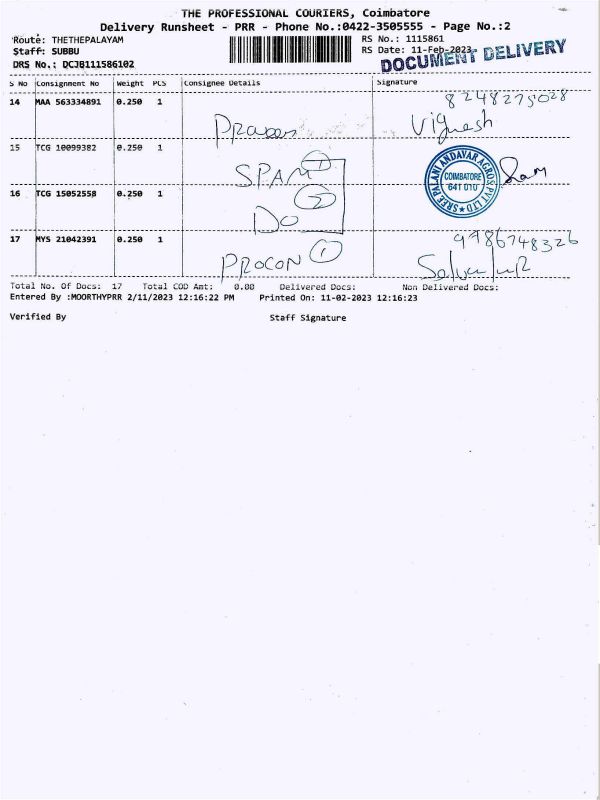 THE PROFESSIONAL COURIERS, Coimbatore
Delivery Runsheet - PRR - Phone No.:0422-3505555 - Page No.:2
Route: THETHEPALAYAM
RS No.: 1115861
Staff: SUBBU
RS Date: 11-Feb-2023
DRS No.: DCJB111586102
DOCUMENT DELIVERY
S No Consignment No Weight PCS Consignee Details Signature
14 MAA 563334891 0.250 1
8248275028
Vignesh
15 TCG 10099382 0.250 1
SPAM
SREE PALANI ANDAVAR AGROS PVT LTD
COIMBATORE
641 010
Ram
16 TCG 15052558 0.250 1
2
DO
17 MYS 21042391 0.250 1
PROCON 1
9786748326
Total No. Of Docs: 17 Total COD Amt: 0.00 Delivered Docs: Non Delivered Docs:
Entered By :MOORTHYPRR 2/11/2023 12:16:22 PM Printed On: 11-02-2023 12:16:23
Verified By Staff Signature